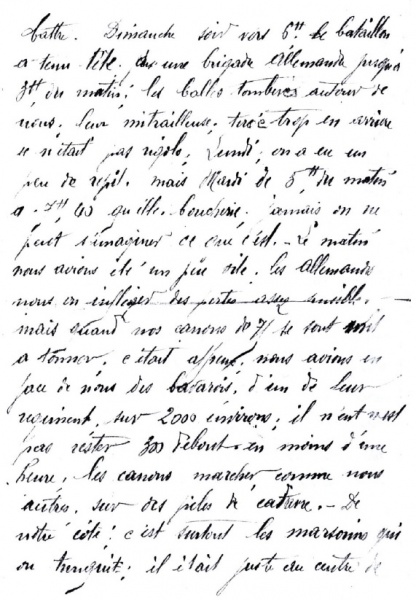 battre. Dimanche soir vers 6H le bataillon
a tenu tête à une brigade allemande jusqu'à
3H du matin; les balles tombées autour de
nous. leur mitrailleuse, tirée trop en arrière
ce n'était pas rigolo, Lundi, on a eu un
peu de répit. mais Mardi de 5H du matin
a 7H 40 quelle boucherie. jamais on ne
peut s'imaginer ce que c'est. - Le matin
nous avions été un peu vite. les allemands
nous on infligèr des pertes assez sensible. -
mais quand nos canons de 75 se sont mit
a tonner, c'était affreux, nous avions en
face de nous des bavarois, d'un de leur
regiment, sur 2000 environs, il n'ent
pas rester 300 debout. en moins d'une
heure. les canons marcher comme nous
autres. sur des piles de cadavre. - De
notre côté: c'est surtout les marsouins qui
on trinquit; il était juste au centre de